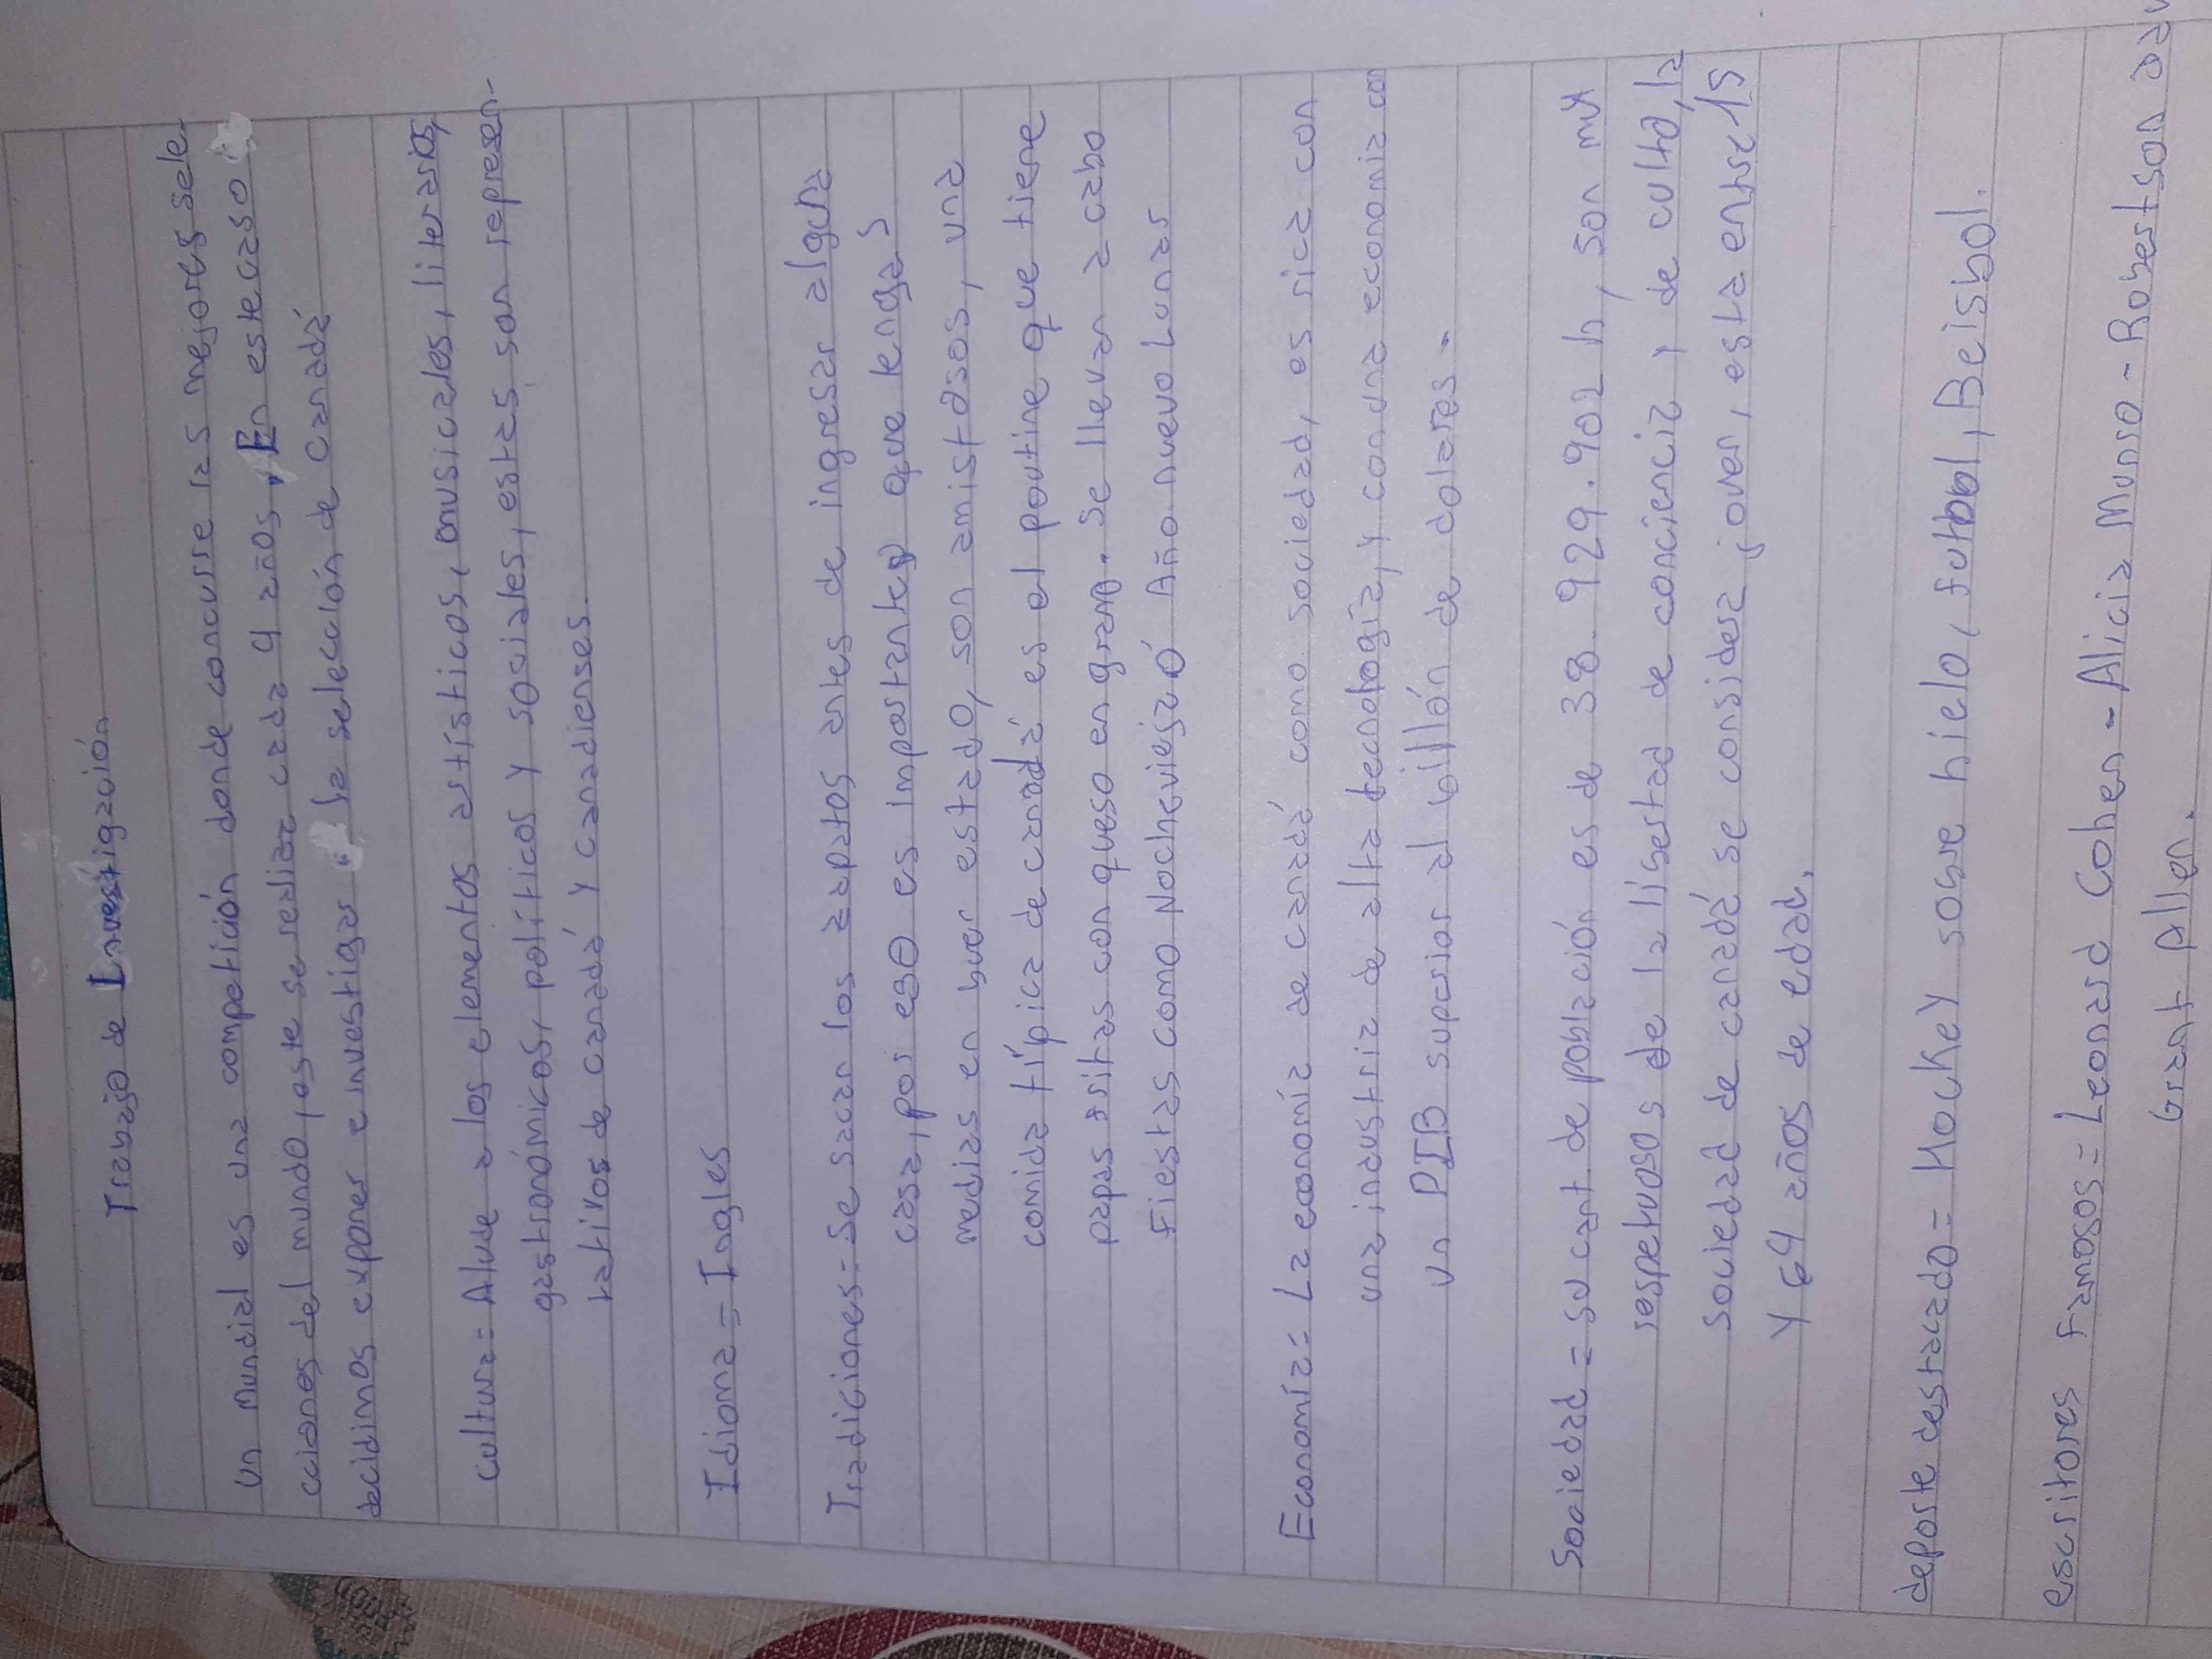 Trabajo de Investigación
Un Mundial es una competición donde concurre las mejores sele-
cciones del mundo, este se realiza cada 4 años. En este caso
decidimos exponer e investigar la selección de Canadá
Cultura= Alude a los elementos artísticos, musicales, literarios,
gastronómicos, políticos y sociales, estas son represen-
tativos de Canadá y canadienses.
Idioma = Ingles
Tradiciones= Se sacan los zapatos antes de ingresar alguna
casa, por eso es importante que tengas
medias en buen estado, son amistosos, una
comida típica de canadá es el poutine que tiene
papas fritas con queso en grano. Se llevan a cabo
Fiestas como Nochevieja o Año nuevo Lunar
Economía= La economía de canadá como sociedad, es rica con
una industria de alta tecnología, y con una economia con
un PIB superior al billón de dolares.
Sociedad = su cant de población es de 38.929.902 h, son muy
respetuosos de la libertad de conciencia, de culto, la
sociedad de canadá se considera joven, esta entre 15
y 64 años de edad.
deporte destacado= Hockey sobre hielo, futbol, Beisbol.
escritores Famosos= Leonard Cohen - Alicia Munro - Robertson
Grant Allen.